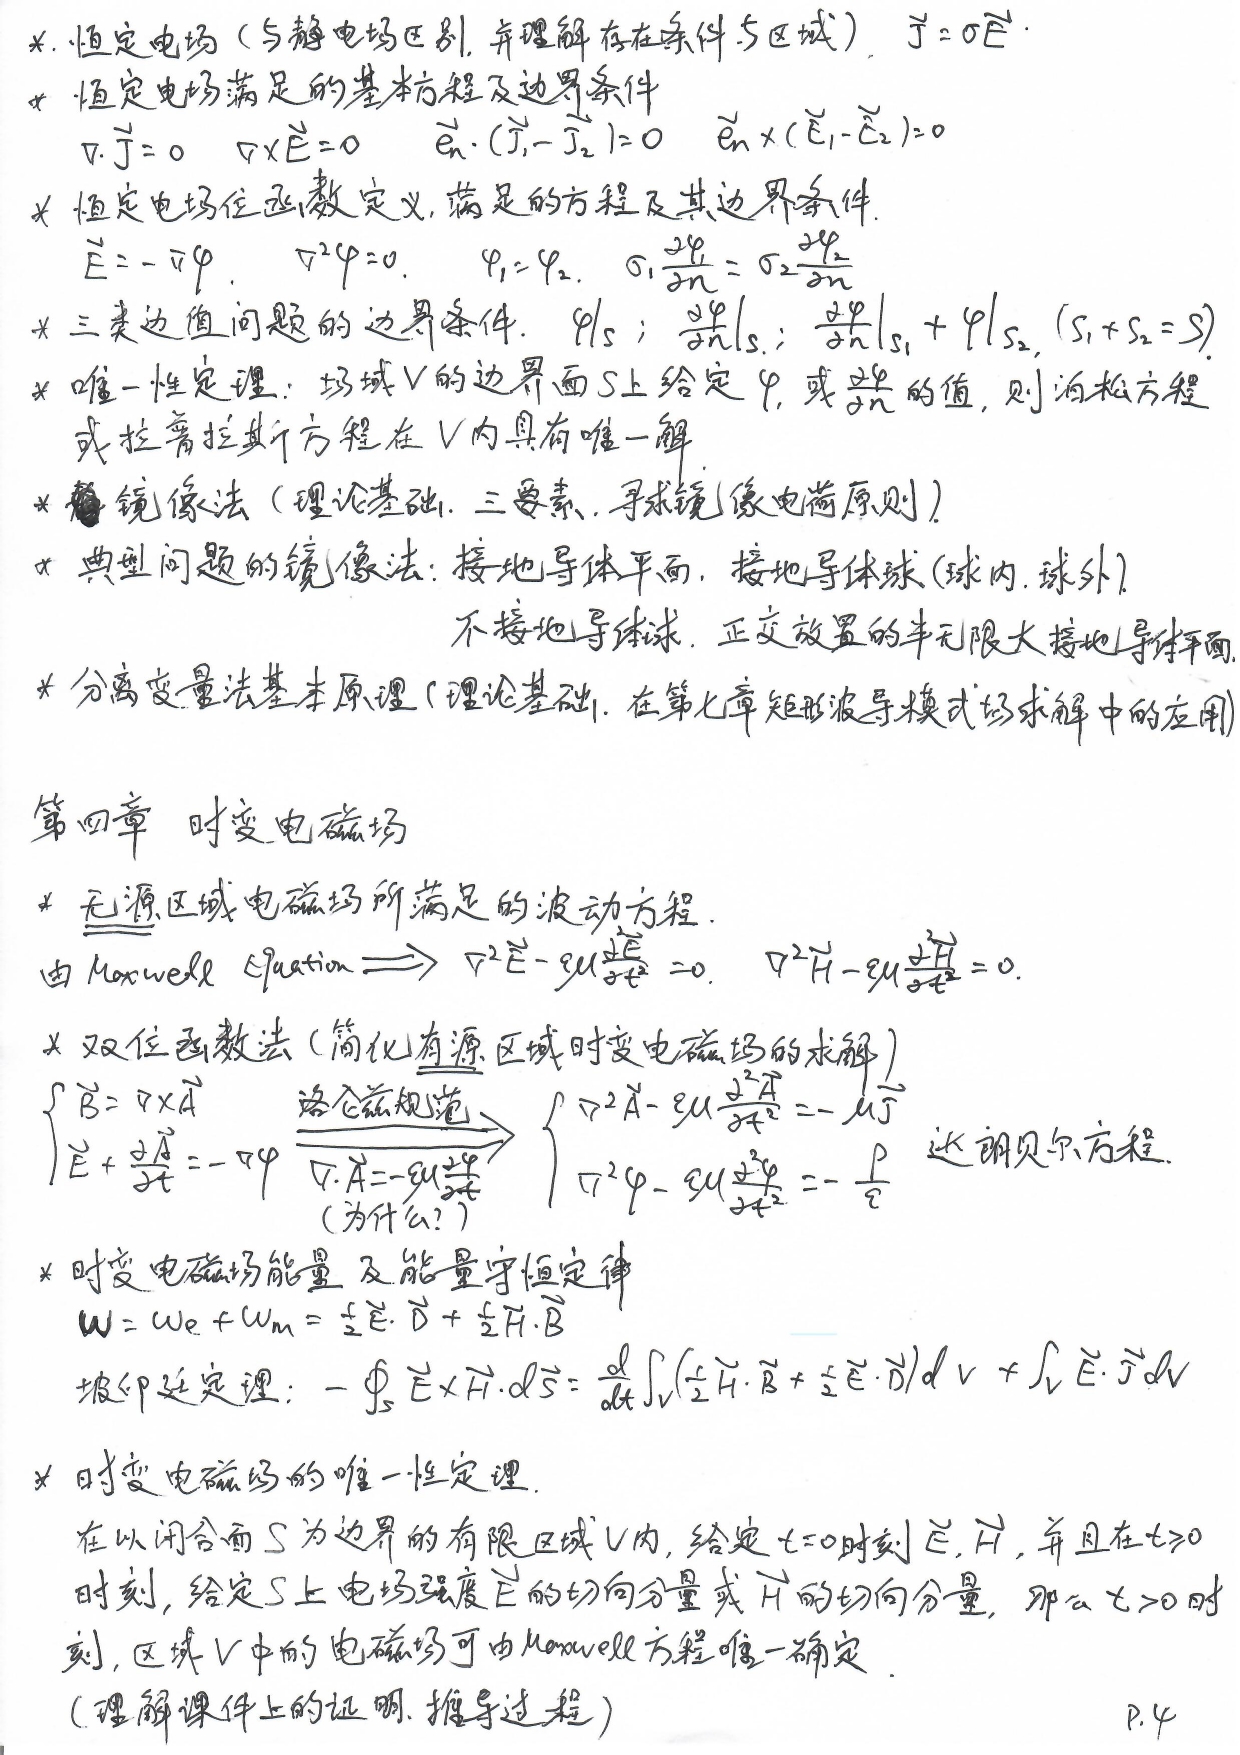 *. 恒定电场（与静电场区别, 并理解存在条件与区域）. J⃗ = σE⃗.
* 恒定电场满足的基本方程及边界条件
∇·J⃗ = 0  ∇×E⃗ = 0  e⃗n·(J⃗₁-J⃗₂) = 0  e⃗n×(E⃗₁-E⃗₂) = 0
* 恒定电场位函数定义, 满足的方程及其边界条件.
E⃗ = -∇φ.  ∇²φ = 0.  φ₁ = φ₂.  σ₁ ∂φ₁/∂n = σ₂ ∂φ₂/∂n
* 三类边值问题的边界条件. φ|s ; ∂φ/∂n|s. ; ∂φ/∂n|s₁ + φ|s₂, (S₁+S₂=S).
* 唯一性定理: 场域V的边界面S上给定 φ, 或 ∂φ/∂n 的值, 则泊松方程
或拉普拉斯方程在V内具有唯一解.
* 镜像法（理论基础. 三要素. 寻求镜像电荷原则）.
* 典型问题的镜像法: 接地导体平面. 接地导体球(球内. 球外).
不接地导体球. 正交放置的半无限大接地导体平面.
* 分离变量法基本原理（理论基础. 在第七章矩形波导模式场求解中的应用）
第四章 时变电磁场
* 无源区域电磁场所满足的波动方程.
由 Maxwell Equation ⟹ ∇²E⃗ - εμ ∂²E⃗/∂t² = 0.  ∇²H⃗ - εμ ∂²H⃗/∂t² = 0.
* 双位函数法（简化有源区域时变电磁场的求解）
{ B⃗ = ∇×A⃗  洛仑兹规范  { ∇²A⃗ - εμ ∂²A⃗/∂t² = -μJ⃗
E⃗ + ∂A⃗/∂t = -∇φ  ⟹ ∇·A⃗ = -εμ ∂φ/∂t  ∇²φ - εμ ∂²φ/∂t² = -ρ/ε  达朗贝尔方程.
（为什么?）
* 时变电磁场能量及能量守恒定律
w = we + wm = ½E⃗·D⃗ + ½H⃗·B⃗
坡印廷定理: -∮s E⃗×H⃗·dS⃗ = d/dt ∫v(½H⃗·B⃗ + ½E⃗·D⃗)dV + ∫v E⃗·J⃗ dV
* 时变电磁场的唯一性定理.
在以闭合面S为边界的有限区域V内, 给定 t=0时刻 E⃗, H⃗, 并且在t≥0
时刻, 给定S上电场强度E⃗的切向分量或H⃗的切向分量, 那么 t>0时
刻, 区域V中的电磁场可由Maxwell方程唯一确定.
（理解课件上的证明、推导过程）
P.4